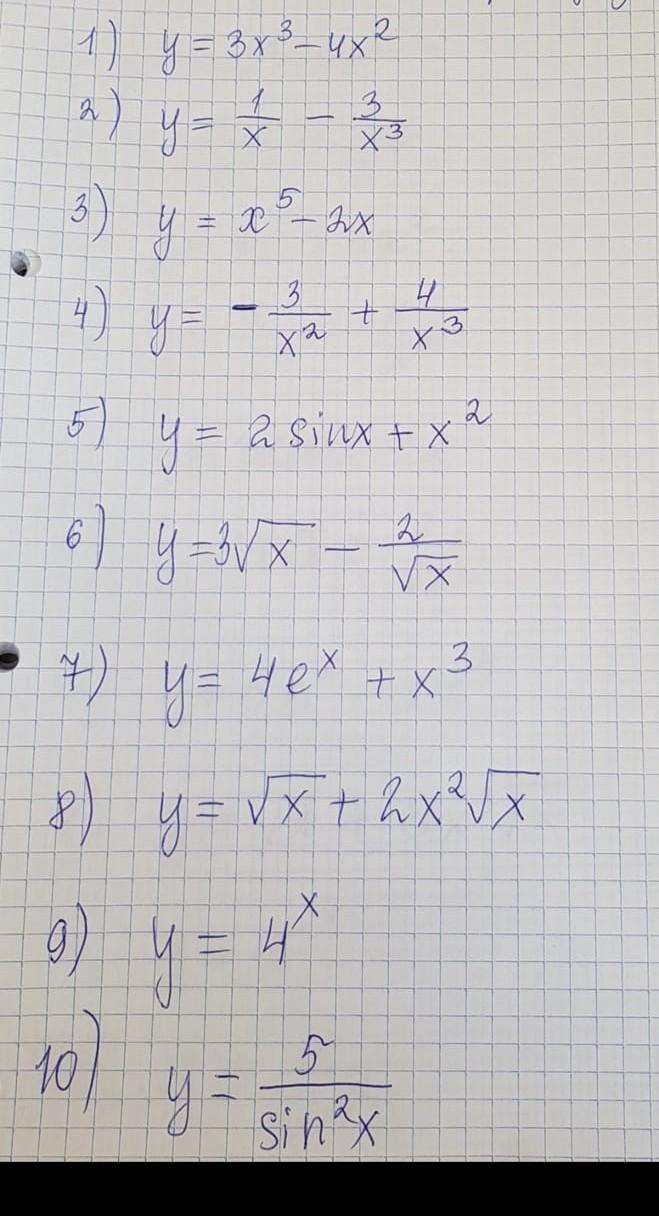 1) y = 3x³ - 4x²
2) y = 1/x - 3/x³
3) y = x⁵ - 2x
4) y = - 3/x² + 4/x³
5) y = 2 sinx + x²
6) y = 3√x - 2/√x
7) y = 4eˣ + x³
8) y = √x + 2x²√x
9) y = 4ˣ
10) y = 5/sin²x